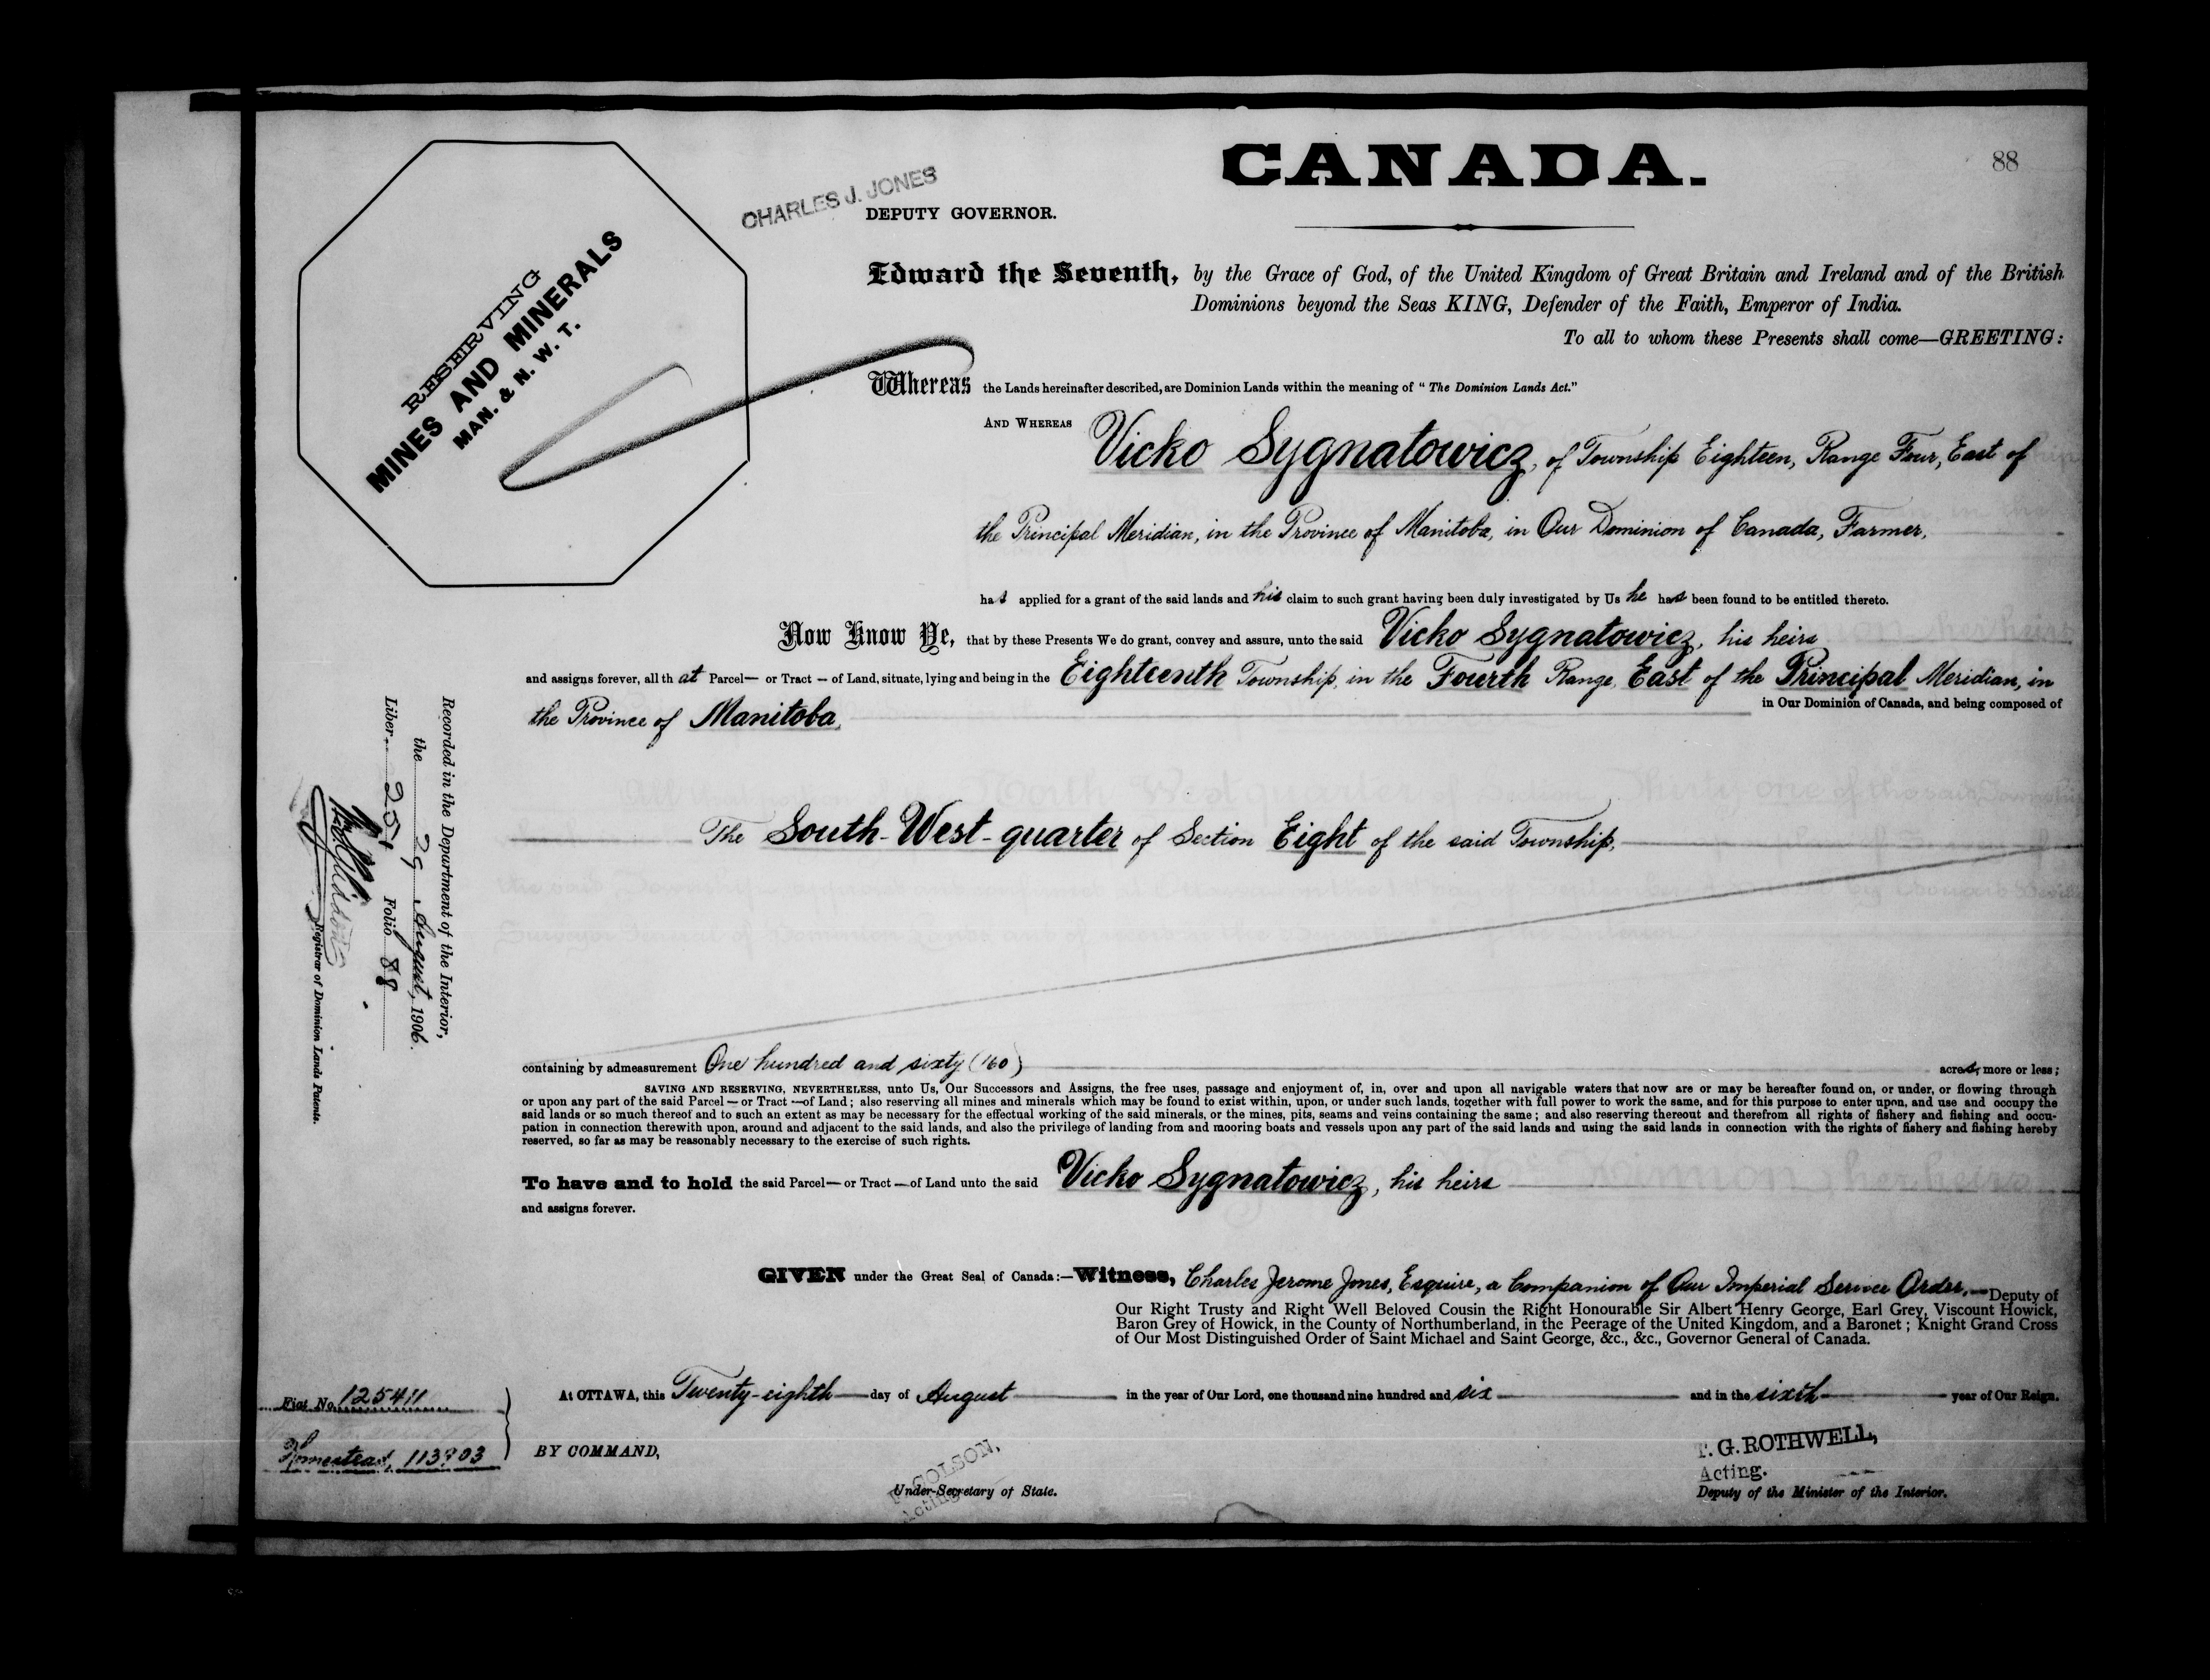 CANADA.
88
CHARLES J. JONES
DEPUTY GOVERNOR.
RESERVING
MINES AND MINERALS
MAN. & N. W. T.
Edward the Seventh, by the Grace of God, of the United Kingdom of Great Britain and Ireland and of the British
Dominions beyond the Seas KING, Defender of the Faith, Emperor of India.
To all to whom these Presents shall come—GREETING:
Whereas the Lands hereinafter described, are Dominion Lands within the meaning of "The Dominion Lands Act."
AND WHEREAS Vicko Sygnatowicz, of Township Eighteen, Range Four, East of
the Principal Meridian, in the Province of Manitoba, in Our Dominion of Canada, Farmer,
has applied for a grant of the said lands and his claim to such grant having been duly investigated by Us he has been found to be entitled thereto.
Now Know Ye, that by these Presents We do grant, convey and assure, unto the said Vicko Sygnatowicz, his heirs
and assigns forever, all that Parcel— or Tract — of Land, situate, lying and being in the Eighteenth Township, in the Fourth Range, East of the Principal Meridian, in
the Province of Manitoba, in Our Dominion of Canada, and being composed of
The South-West-quarter of Section Eight of the said Township,
containing by admeasurement One hundred and sixty (160) acres, more or less;
SAVING AND RESERVING, NEVERTHELESS, unto Us, Our Successors and Assigns, the free uses, passage and enjoyment of, in, over and upon all navigable waters that now are or may be hereafter found on, or under, or flowing through
or upon any part of the said Parcel — or Tract — of Land; also reserving all mines and minerals which may be found to exist within, upon, or under such lands, together with full power to work the same, and for this purpose to enter upon, and use and occupy the
said lands or so much thereof and to such an extent as may be necessary for the effectual working of the said minerals, or the mines, pits, seams and veins containing the same; and also reserving thereout and therefrom all rights of fishery and fishing and occu-
pation in connection therewith upon, around and adjacent to the said lands, and also the privilege of landing from and mooring boats and vessels upon any part of the said lands and using the said lands in connection with the rights of fishery and fishing hereby
reserved, so far as may be reasonably necessary to the exercise of such rights.
To have and to hold the said Parcel— or Tract — of Land unto the said Vicko Sygnatowicz, his heirs
and assigns forever.
GIVEN under the Great Seal of Canada:—Witness, Charles Jerome Jones, Esquire, a Companion of Our Imperial Service Order,—Deputy of
Our Right Trusty and Right Well Beloved Cousin the Right Honourable Sir Albert Henry George, Earl Grey, Viscount Howick,
Baron Grey of Howick, in the County of Northumberland, in the Peerage of the United Kingdom, and a Baronet; Knight Grand Cross
of Our Most Distinguished Order of Saint Michael and Saint George, &c., &c., Governor General of Canada.
At OTTAWA, this Twenty-eighth day of August in the year of Our Lord, one thousand nine hundred and six and in the sixth year of Our Reign.
BY COMMAND,
COLSON,
Acting
Under-Secretary of State.
G. ROTHWELL,
Acting.
Deputy of the Minister of the Interior.
Fiat No. 125411
Homestead,
Recorded in the Department of the Interior,
the 29 August, 1906.
Liber 251 Folio 88
Registrar of Dominion Lands Patents.